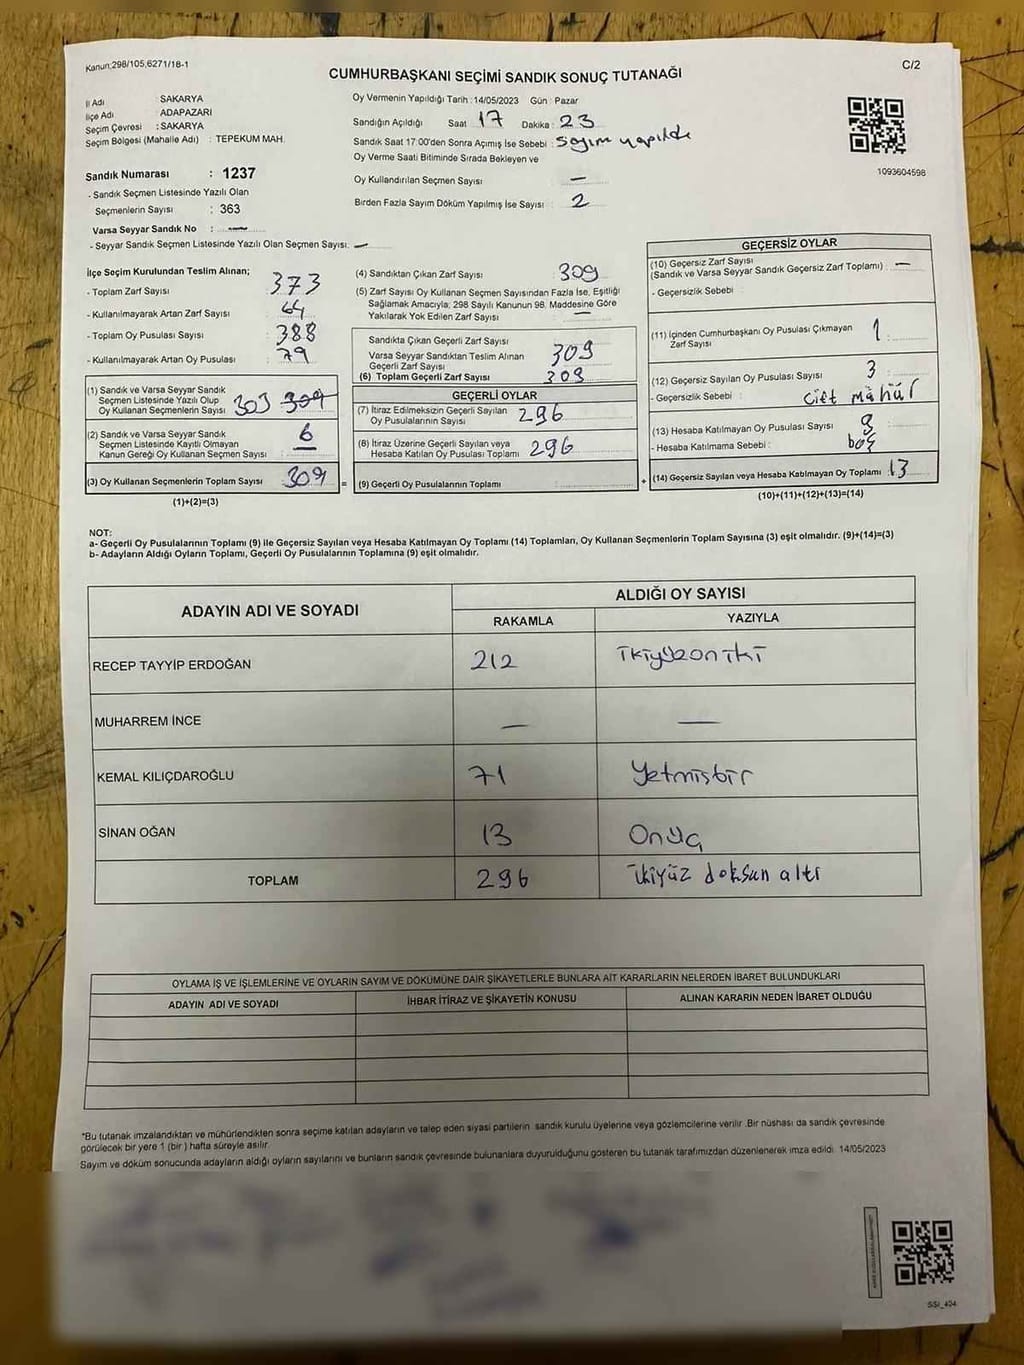 Kanun:298/105,6271/18-1
C/2
CUMHURBAŞKANI SEÇİMİ SANDIK SONUÇ TUTANAĞI
İl Adı SAKARYA
İlçe Adı ADAPAZARI
Seçim Çevresi : SAKARYA
Seçim Bölgesi (Mahalle Adı) : TEPEKUM MAH.
Sandık Numarası : 1237
- Sandık Seçmen Listesinde Yazılı Olan
Seçmenlerin Sayısı : 363
Varsa Seyyar Sandık No : —
- Seyyar Sandık Seçmen Listesinde Yazılı Olan Seçmen Sayısı: —
Oy Vermenin Yapıldığı Tarih :14/05/2023 Gün : Pazar
Sandığın Açıldığı Saat 17 Dakika : 23
Sandık Saat 17:00'den Sonra Açımış İse Sebebi : Sayım yapıldı
Oy Verme Saati Bitiminde Sırada Bekleyen ve
Oy Kullandırılan Seçmen Sayısı : —
Birden Fazla Sayım Döküm Yapılmış İse Sayısı : 2
1093604598
İlçe Seçim Kurulundan Teslim Alınan;
- Toplam Zarf Sayısı : 373
- Kullanılmayarak Artan Zarf Sayısı : 64
- Toplam Oy Pusulası Sayısı : 388
- Kullanılmayarak Artan Oy Pusulası : 79
(1) Sandık ve Varsa Seyyar Sandık
Seçmen Listesinde Yazılı Olup
Oy Kullanan Seçmenlerin Sayısı : 303 309
(2) Sandık ve Varsa Seyyar Sandık
Seçmen Listesinde Kayıtlı Olmayan
Kanun Gereği Oy Kullanan Seçmen Sayısı : 6
(3) Oy Kullanan Seçmenlerin Toplam Sayısı : 309
(1)+(2)=(3)
(4) Sandıktan Çıkan Zarf Sayısı : 309
(5) Zarf Sayısı Oy Kullanan Seçmen Sayısından Fazla İse, Eşitliği
Sağlamak Amacıyla; 298 Sayılı Kanunun 98. Maddesine Göre
Yakılarak Yok Edilen Zarf Sayısı : —
Sandıkta Çıkan Geçerli Zarf Sayısı :
Varsa Seyyar Sandıktan Teslim Alınan
Geçerli Zarf Sayısı : 309
(6) Toplam Geçerli Zarf Sayısı : 309
GEÇERLİ OYLAR
(7) İtiraz Edilmeksizin Geçerli Sayılan
Oy Pusulalarının Sayısı : 296
(8) İtiraz Üzerine Geçerli Sayılan veya
Hesaba Katılan Oy Pusulası Toplamı : 296
= (9) Geçerli Oy Pusulalarının Toplamı : +
GEÇERSİZ OYLAR
(10) Geçersiz Zarf Sayısı
(Sandık ve Varsa Seyyar Sandık Geçersiz Zarf Toplamı) : —
- Geçersizlik Sebebi :
(11) İçinden Cumhurbaşkanı Oy Pusulası Çıkmayan
Zarf Sayısı : 1
(12) Geçersiz Sayılan Oy Pusulası Sayısı : 3
- Geçersizlik Sebebi : Çift mühür
(13) Hesaba Katılmayan Oy Pusulası Sayısı : 9
- Hesaba Katılmama Sebebi : boş
(14) Geçersiz Sayılan veya Hesaba Katılmayan Oy Toplamı : 13
(10)+(11)+(12)+(13)=(14)
NOT:
a- Geçerli Oy Pusulalarının Toplamı (9) ile Geçersiz Sayılan veya Hesaba Katılmayan Oy Toplamı (14) Toplamları, Oy Kullanan Seçmenlerin Toplam Sayısına (3) eşit olmalıdır. (9)+(14)=(3)
b- Adayların Aldığı Oyların Toplamı, Geçerli Oy Pusulalarının Toplamına (9) eşit olmalıdır.
ADAYIN ADI VE SOYADI
ALDIĞI OY SAYISI
RAKAMLA YAZIYLA
RECEP TAYYİP ERDOĞAN 212 ikiyüzoniki
MUHARREM İNCE — —
KEMAL KILIÇDAROĞLU 71 Yetmişbir
SİNAN OĞAN 13 Onüç
TOPLAM 296 ikiyüz doksan altı
OYLAMA İŞ VE İŞLEMLERİNE VE OYLARIN SAYIM VE DÖKÜMÜNE DAİR ŞİKAYETLERLE BUNLARA AİT KARARLARIN NELERDEN İBARET BULUNDUKLARI
ADAYIN ADI VE SOYADI İHBAR İTİRAZ VE ŞİKAYETİN KONUSU ALINAN KARARIN NEDEN İBARET OLDUĞU
*Bu tutanak imzalandıktan ve mühürlendikten sonra seçime katılan adayların ve talep eden siyasi partilerin sandık kurulu üyelerine veya gözlemcilerine verilir .Bir nüshası da sandık çevresinde
görülecek bir yere 1 (bir ) hafta süreyle asılır.
Sayım ve döküm sonucunda adayların aldığı oyların sayılarını ve bunların sandık çevresinde bulunanlara duyurulduğunu gösteren bu tutanak tarafımızdan düzenlenerek imza edildi. 14/05/2023
SSI_404